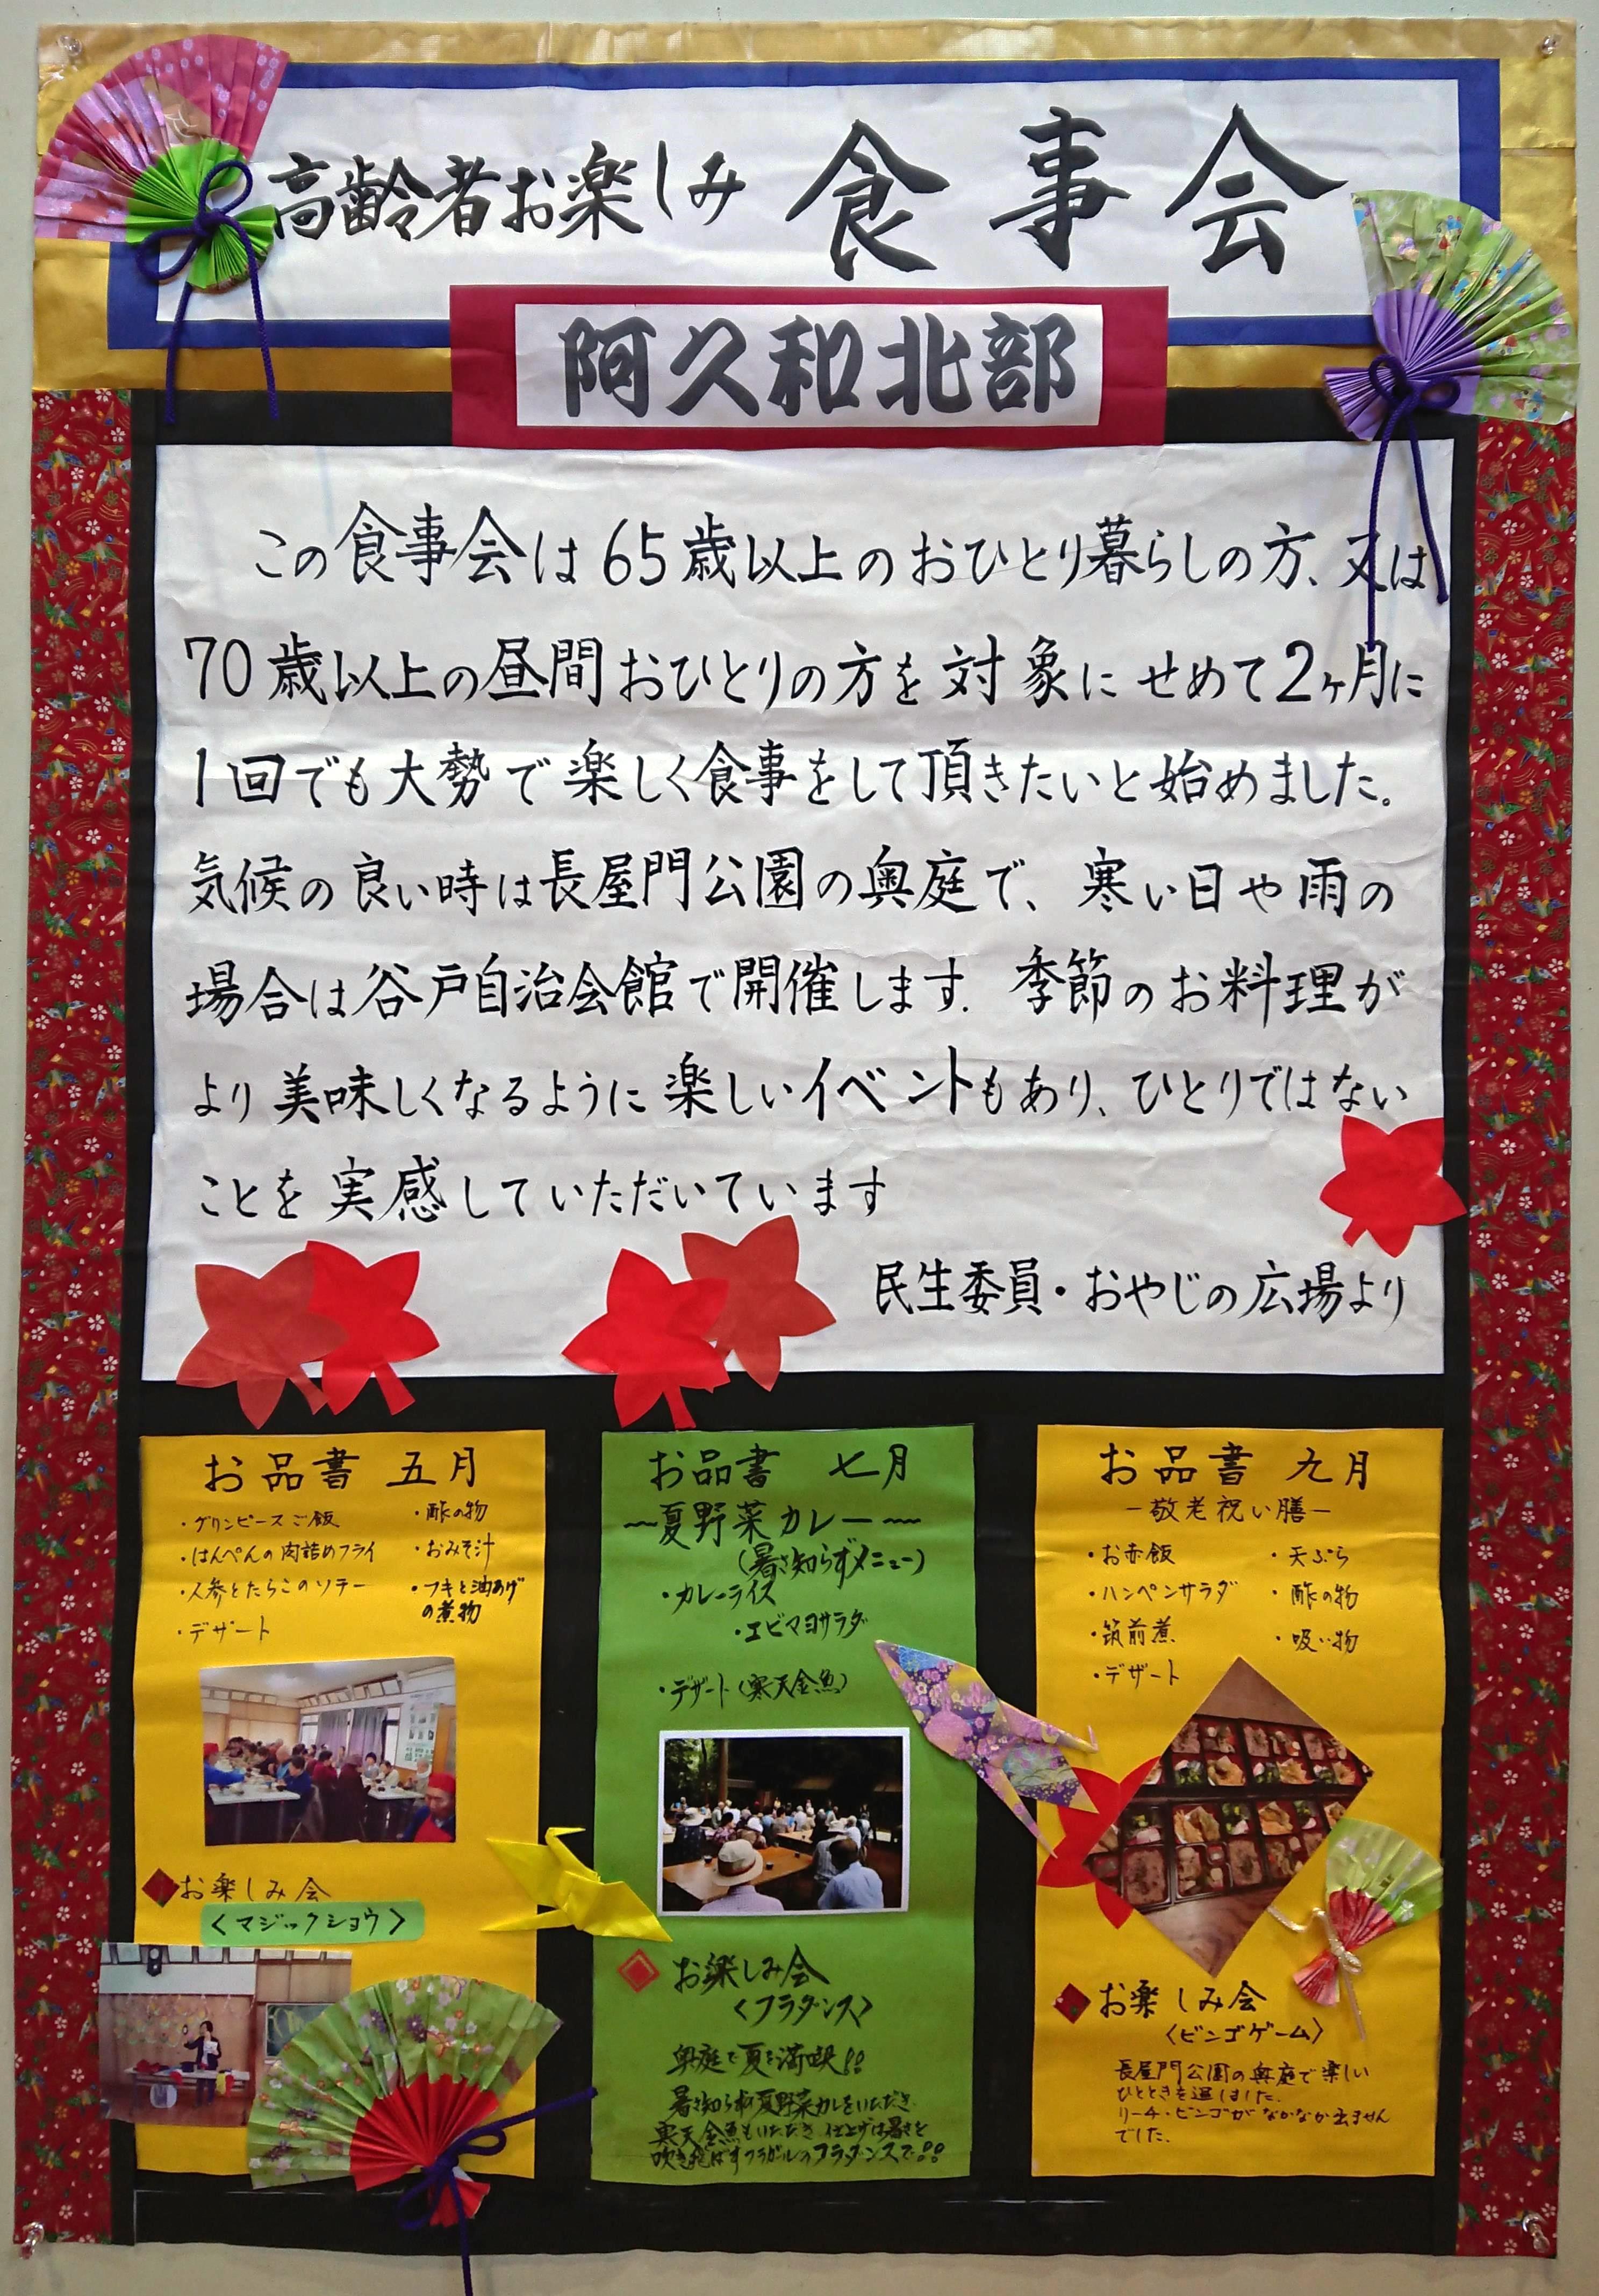 高齢者お楽しみ 食事会
阿久和北部
この食事会は65歳以上のおひとり暮らしの方、又は
70歳以上の昼間おひとりの方を対象にせめて2ヶ月に
1回でも大勢で楽しく食事をして頂きたいと始めました。
気候の良い時は長屋門公園の奥庭で、寒い日や雨の
場合は谷戸自治会館で開催します。季節のお料理が
より美味しくなるように楽しいイベントもあり、ひとりではない
ことを実感していただいています
民生委員・おやじの広場より
お品書 五月
・グリンピースご飯
・はんぺんの肉詰めフライ
・人参とたらこのソテー
・デザート
・酢の物
・おみそ汁
・フキと油あげ
の煮物
◆お楽しみ会
<マジックショウ>
お品書 七月
〜夏野菜カレー〜
(暑さ知らずメニュー)
・カレーライス
・エビマヨサラダ
・デザート(寒天金魚)
◆お楽しみ会
<フラダンス>
奥庭で夏を満喫!!
暑さ知らずの夏野菜カレーをいただき
寒天金魚もいただき 仕上げは暑さを
吹き飛ばすフラガールのフラダンスで!!
お品書 九月
ー敬老祝い膳ー
・お赤飯
・ハンペンサラダ
・筑前煮
・デザート
・天ぷら
・酢の物
・吸い物
◆お楽しみ会
<ビンゴゲーム>
長屋門公園の奥庭で楽しい
ひとときを過しました。
リーチ・ビンゴがなかなか出ません
でした。